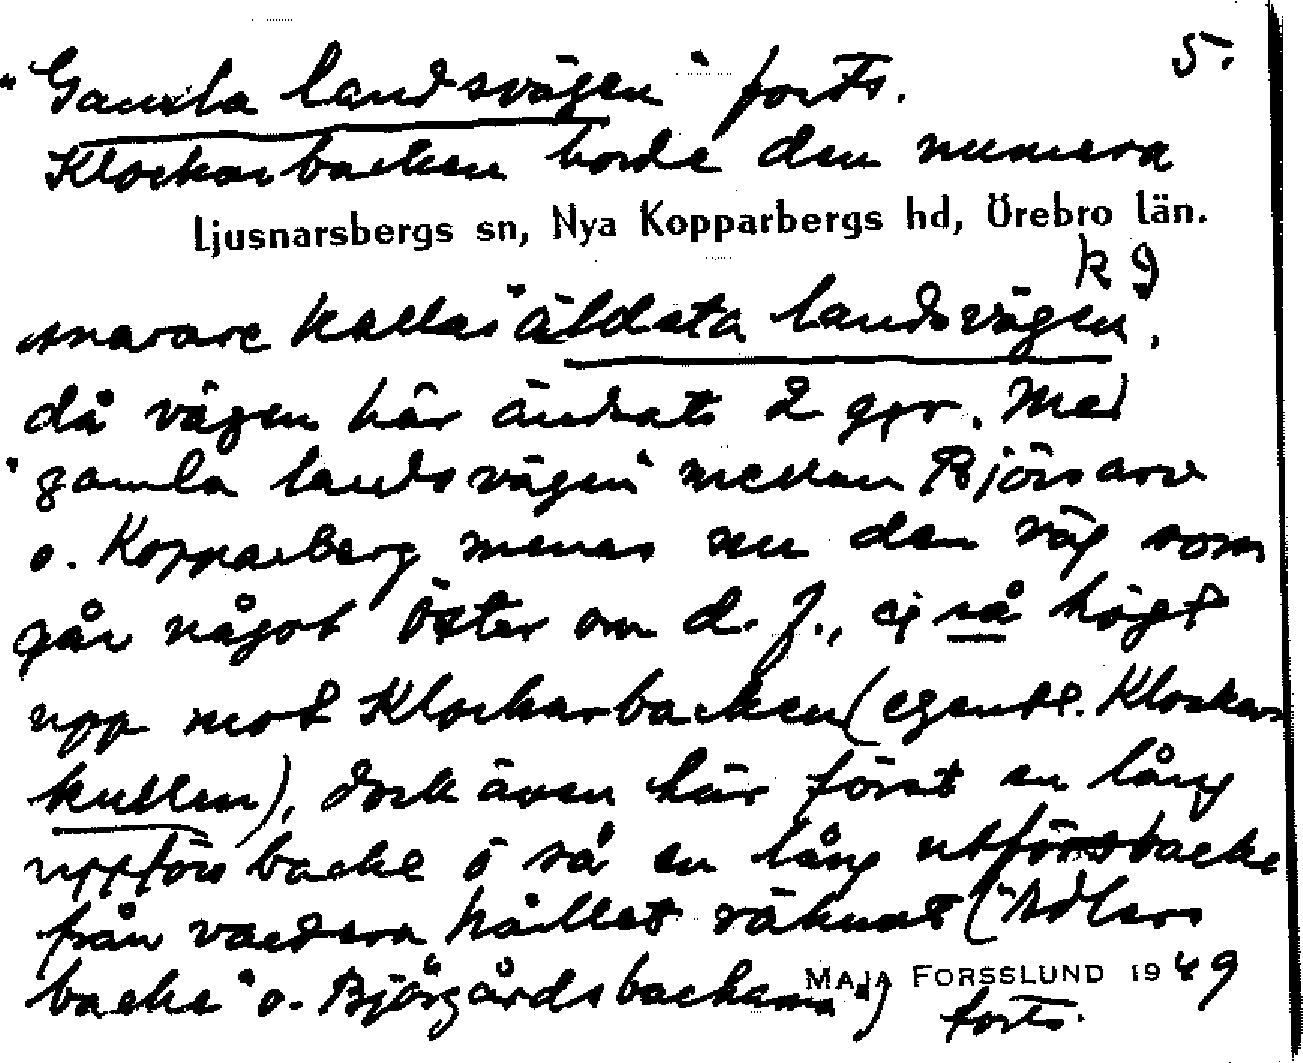 5.
"Gamla landsvägen" forts.
Klockarbacken borde den numera
Ljusnarsbergs sn, Nya Kopparbergs hd, Örebro län.
k g
snarare kallas "äldsta landsvägen",
då vägen här ändrats 2 ggr. Med
"gamla landsvägen" mellan Björsarv
o. Kopparberg menas nu den väg som
går något öster om d. f., ej så högt
upp mot Klockarbacken (egentl. Klockar-
kullen), dock även här först en lång
uppförsbacke o så en lång utförsbacke
från vardera hållet räknat ("Adlers
backe" o. "Björgårdsbackarna")
MAJA FORSSLUND 1949
forts.